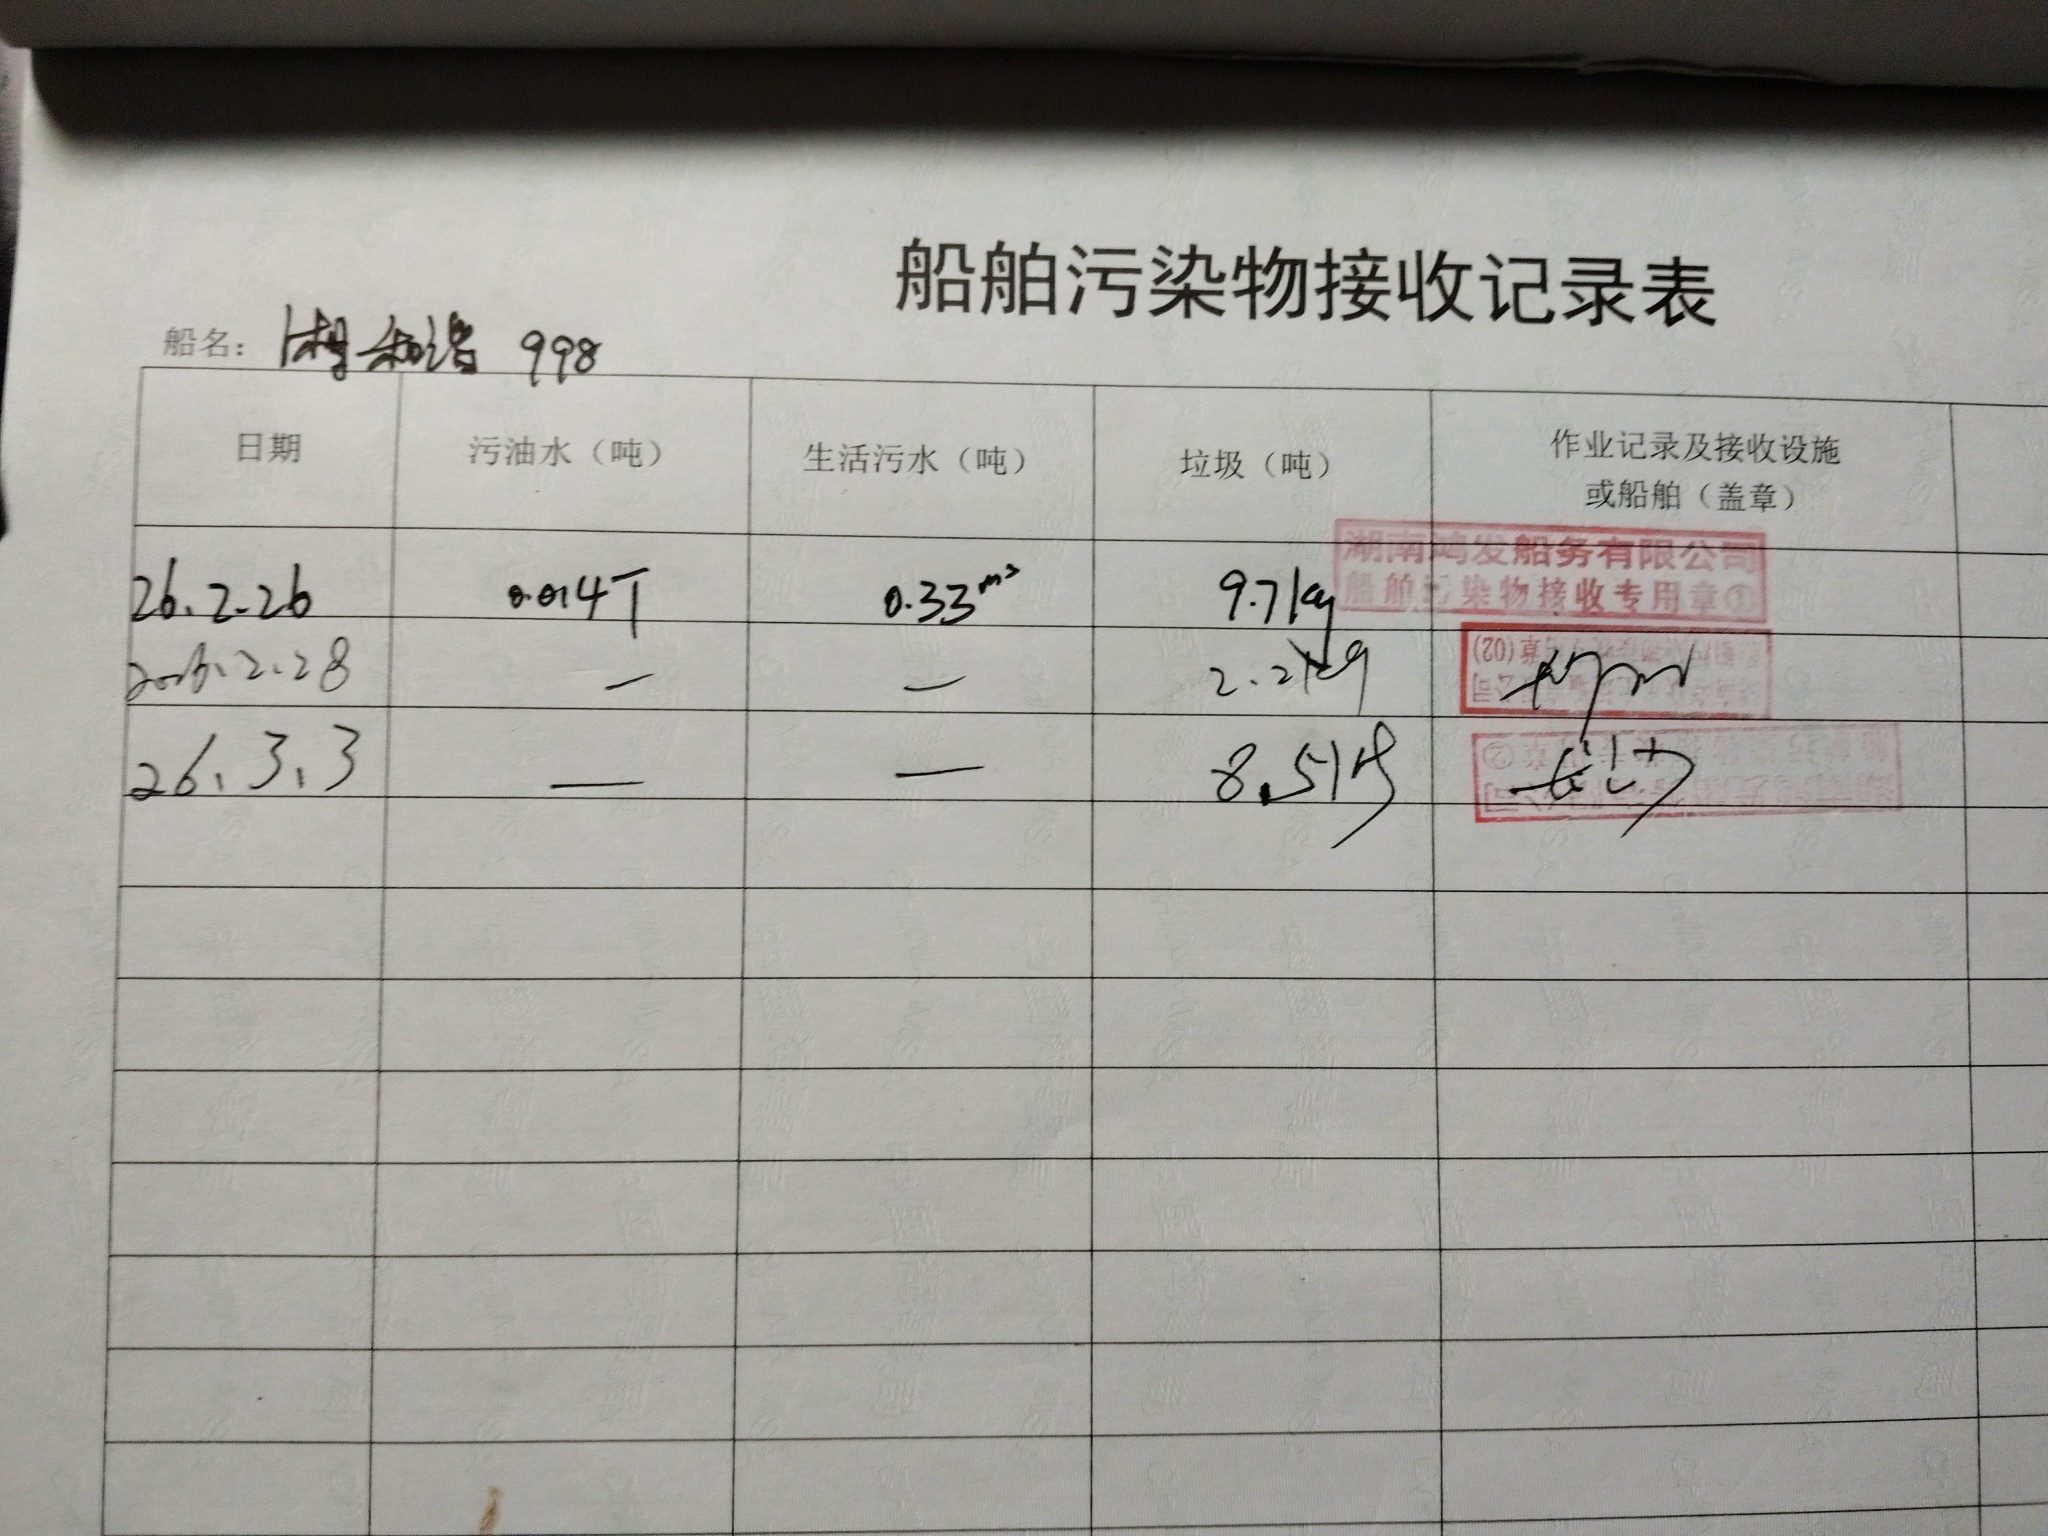 船舶污染物接收记录表
船名：湘和谐 998
日期 污油水（吨） 生活污水（吨） 垃圾（吨） 作业记录及接收设施
或船舶（盖章）
湖南鸿发船务有限公司
船舶污染物接收专用章①
26.2.26 0.014T 0.33m³ 9.7kg
2026.2.28 — — 2.2kg
(02)
26.3.3 — — 8.5kg
②